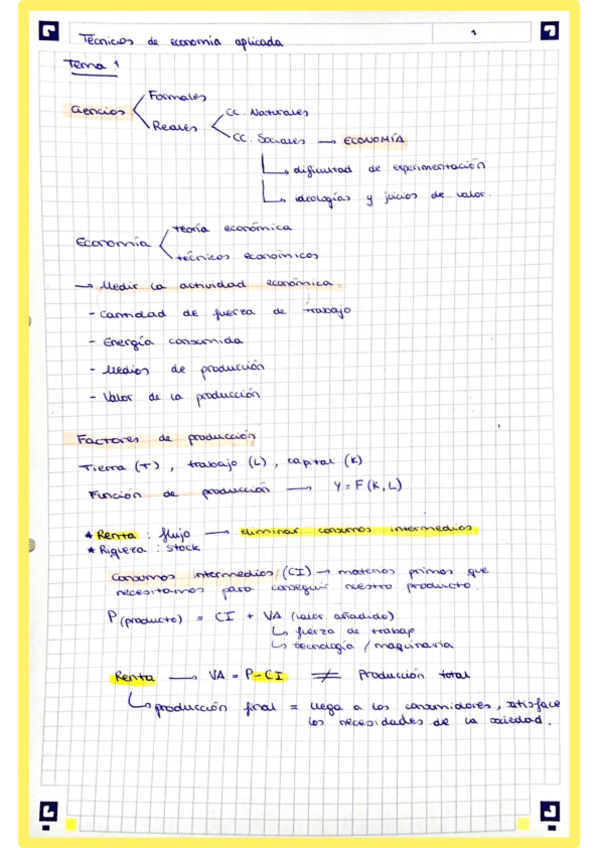 Técnicas de economía aplicada
1
Tema 1
Ciencias
Formales
Reales
CC. Naturales
CC. Sociales → ECONOMÍA
↳ dificultad de experimentación
↳ ideologías y juicios de valor.
Economía
teoría económica
técnicas económicas
→ Medir la actividad económica.
- Cantidad de fuerza de trabajo
- Energía consumida
- Medios de producción
- Valor de la producción
Factores de producción
Tierra (T), trabajo (L), capital (K)
Función de producción → Y = F (K, L)
* Renta : flujo → eliminar consumos intermedios
* Riqueza : stock
Consumos intermedios (CI) → materias primas que
necesitamos para conseguir nuestro producto.
P (producto) = CI + VA (valor añadido)
↳ fuerza de trabajo
↳ tecnología / maquinaria
Renta → VA = P - CI ≠ Producción total
↳ producción final = llega a los consumidores, satisface
las necesidades de la sociedad.